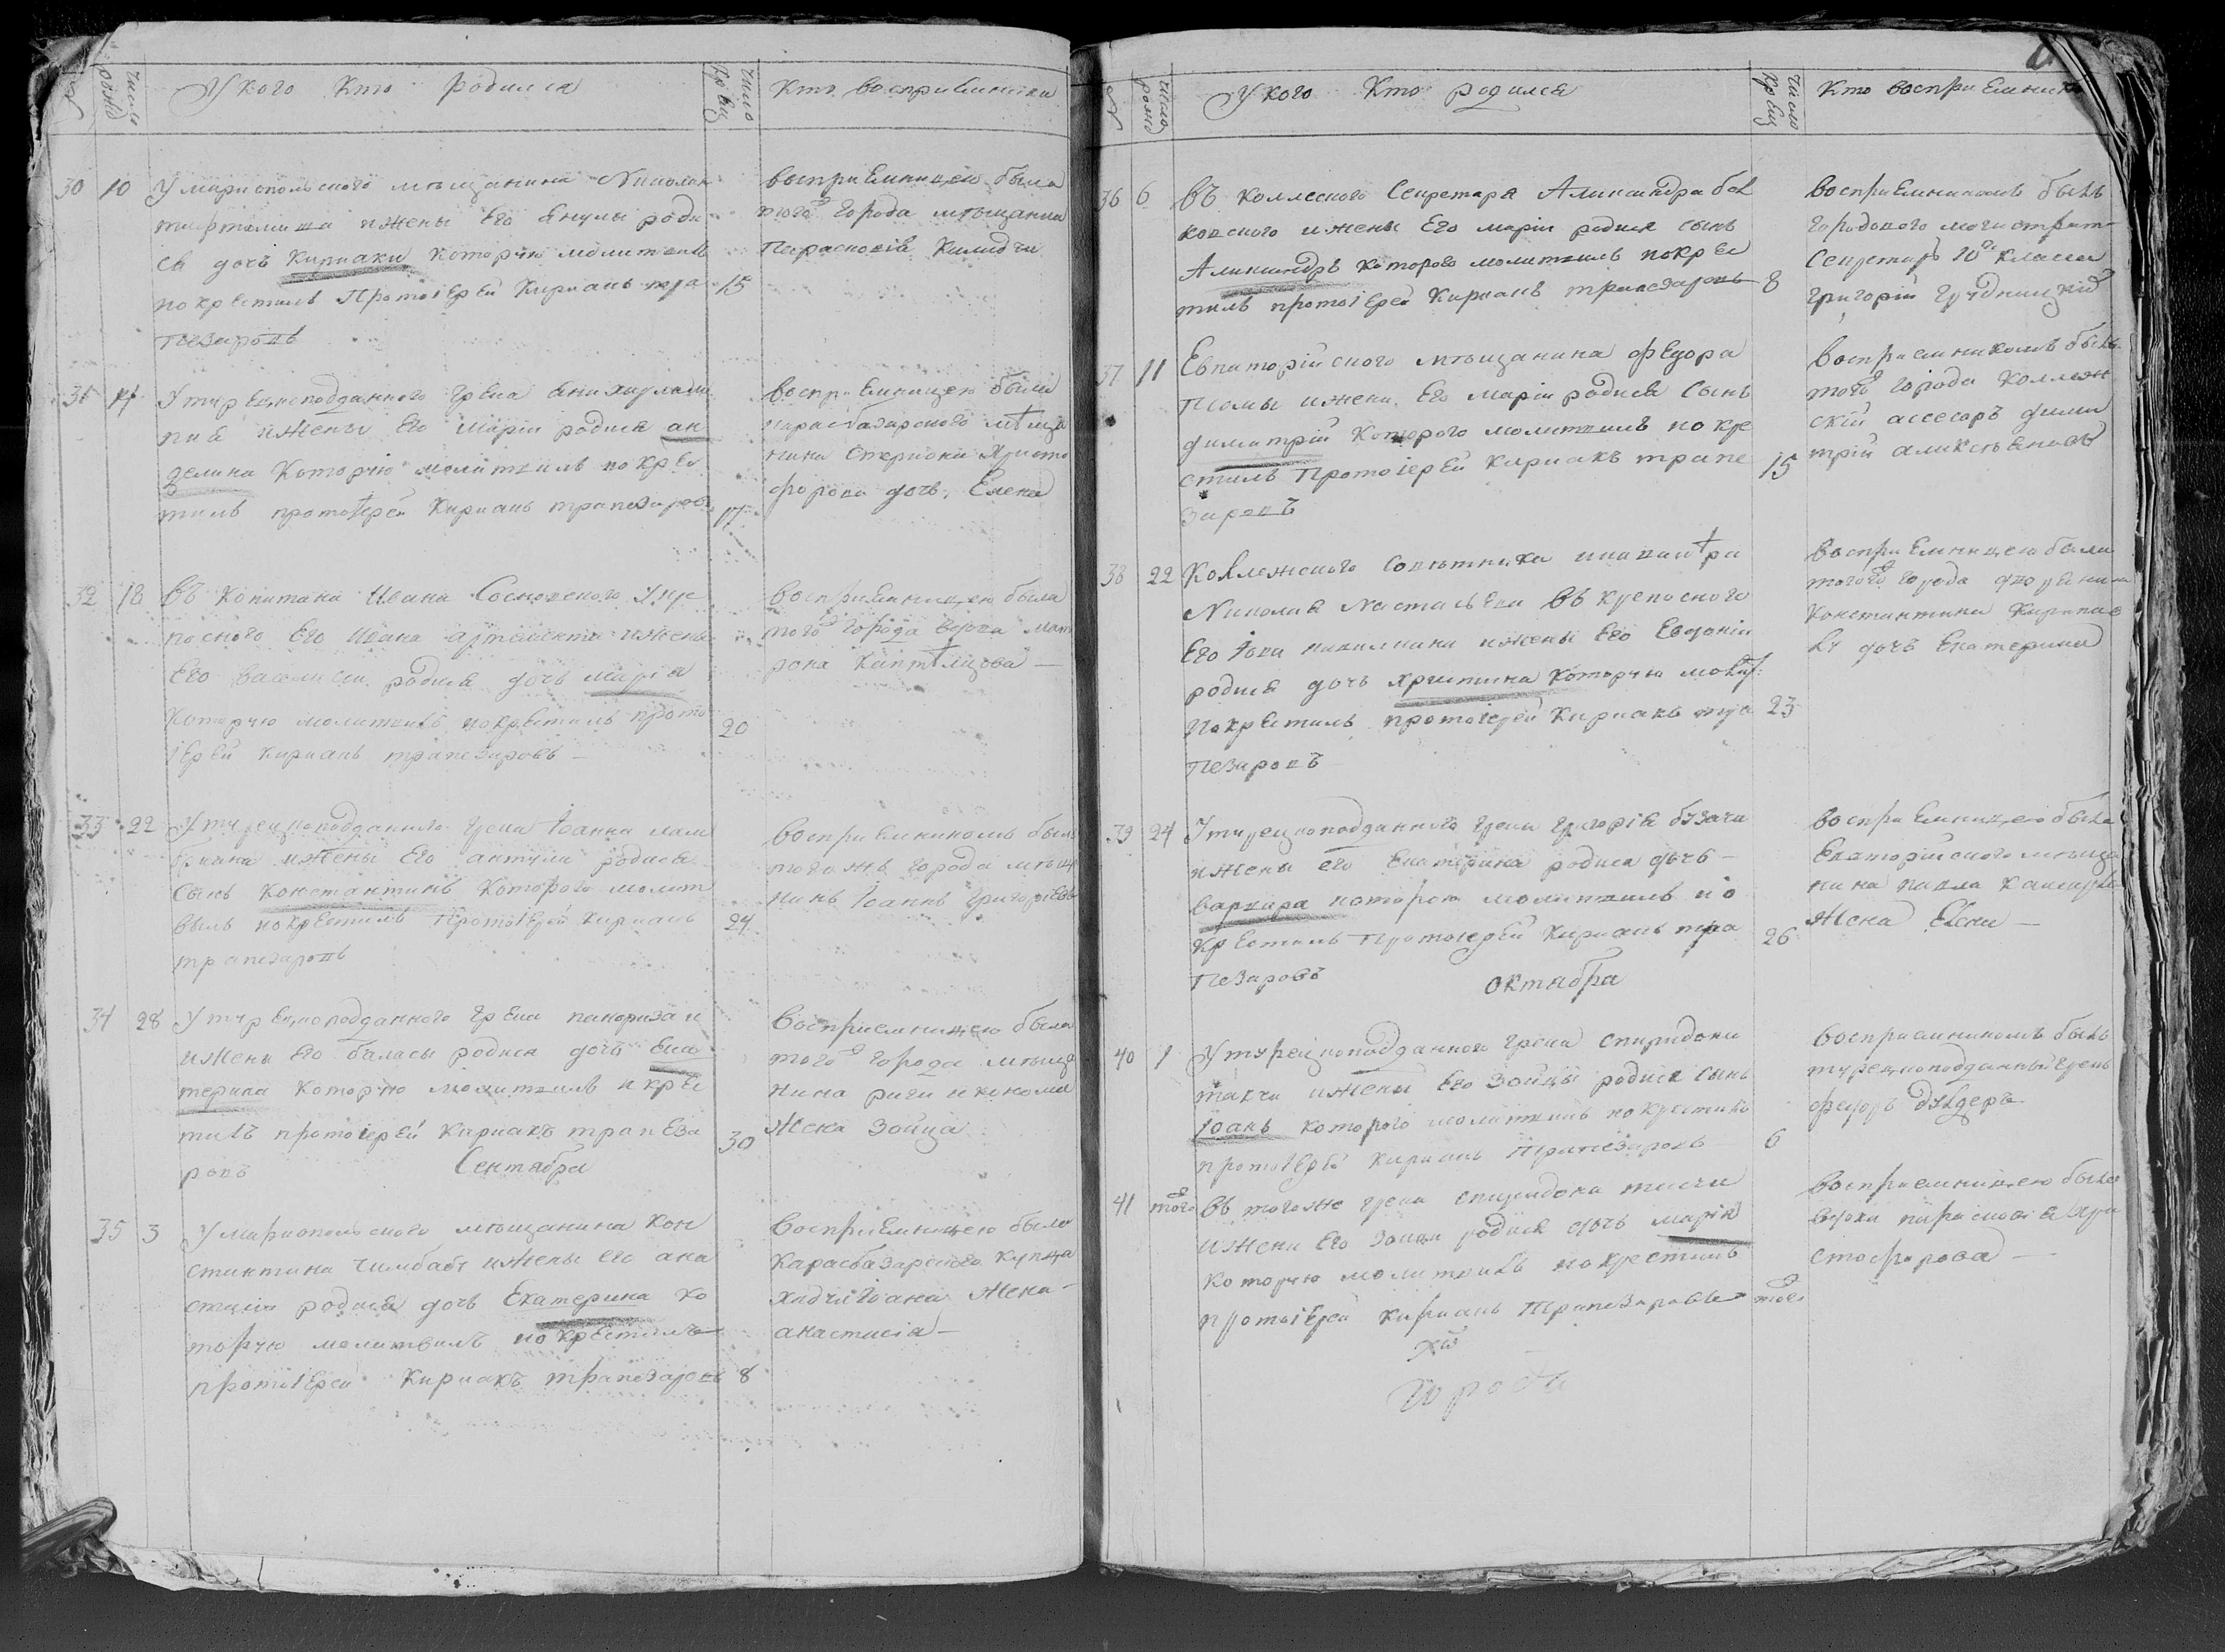 число рожд
У кого кто родился
число крещ
Кто восприемники
30 10 У мариопольского мѣщанина Николая
и жены Его Янулы роди
ся дочь Кириаки которую молитвилъ
покрестилъ Протоіерей Кириакъ тра 15
пезаровъ
восприемницею была
того города мѣщанка
Парасковія
31 14 У турецкоподданного Грека
и жены Его маріи родися ан
гелина Которую молитвилъ покрес
тилъ протоіерей Кириакъ трапезаровъ 17
восприемницею была
карасбазарского мѣща
нина Стериони Христо
форова дочь Елена
32 18 Въ Капитана Ивана Сосновского Укре
посного Его Ивана артемента и жены
Его василиси родися дочь марія
которую молитвилъ покрестилъ прото 20
іерей кириакъ трапезаровъ
восприемницею была
того города вдова мат
рона
33 22 У турецкоподданного грека Іоанна лам
бриана и жены Его родися
сынъ константинъ Которого молит
вилъ покрестилъ протоіерей кириакъ 24
трапезаровъ
восприемникомъ былъ
тогожъ города мѣща
нинъ Іоаннъ Григоріевъ
34 28 У турецкоподданного Грека
и жены Его баласы родися дочь Ека
терина которую молитвилъ и крес
тилъ протоіерей Кириакъ трапеза 30
ровъ
восприемницею была
того города мѣща
нина риги икономи
жена Зоица
Сентября
35 3 У мариопольского мѣщанина Кон
стантина чимбабт и жены его ана
стасіи родися дочь Екатерина ко
торую молитвилъ покрестилъ
протоіерей Кириакъ трапезаровъ 8
восприемницею была
Карасбазарского купца
хадчи Іоана жена
анастасія
число рожд
У кого Кто родился
число крещ
Кто восприемники
36 6 Въ коллеского Секретаря Александра бов
ковского и жены Его маріи родися сынъ
Александръ которого молитвилъ покрес
тилъ протоіерей Кириакъ трапезаровъ 8
восприемникомъ былъ
городового могистрат
Секретарь 10 класса
григорій
37 11 Евпаторійского мѣщанина федора
и жены Его маріи родися Сынъ
димитрій Которого молитвилъ покре
стилъ Протоіерей Кириакъ трапе 15
заровъ
восприемникомъ былъ
того города Коллеж
скій ассесоръ дими
трій алексѣеновъ
38 22 Коллежского Совѣтника
Николая въ крепосного
Его и жены Его Евдокіи
родися дочь христина которую молит
Покрестилъ протоіерей Кириакъ тра 23
пезаровъ
восприемницею была
того города
Константина
дочь Екатерина
39 24 У турецкоподданного грека григорія бузачи
и жены его Екатерина родися дочь
варвара которою молитвилъ по
крестилъ Протоіерей Кириакъ тра 26
пезаровъ
восприемницею была
Евпаторійского мѣща
нина павла
жена Елени
октября
40 1 У турецкоподданного грека спиридона
такчи и жены Его Зоицы родися сынъ
Іоанъ которого молитвилъ покрестилъ 6
протоіерей Кириакъ трапезаровъ
восприемникомъ былъ
турецкоподданный грекъ
федоръ
41 того въ тогоже грека спиридона такчи
и жени Его Зоици родися дочь марія
которую молитвилъ покрестилъ
протоіерей Кириакъ Трапезаровъ того
восприемницею была
вдова парасковія хри
стофорова
города